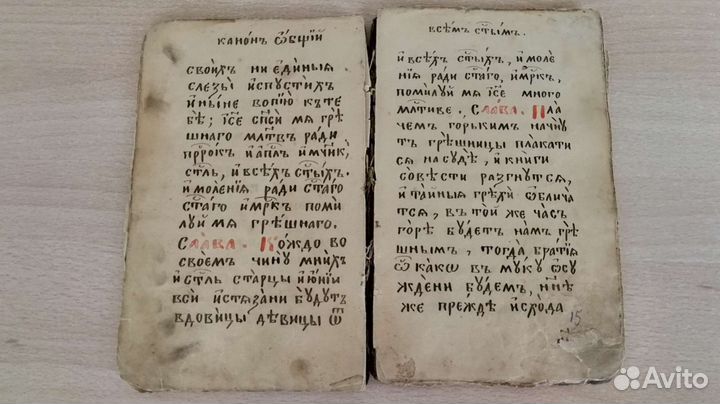 канонъ ѻ҆бщїй
своихъ ни единыѧ
слезы испустих
и ныне вопїю къ те
бѣ; їс҃е сп҃си мѧ грѣ
шнаго мл҃твъ ради
пр҃рокъ и ап҃лъ и мч҃нкъ,
ст҃ль, и всѣхъ ст҃ыхъ.
и моленїѧ ради ст҃аго
ст҃аго и҆мр҃къ поми
луй мѧ грѣшнаго.
Слава. Кождо во
своемъ чину мнихъ
и ст҃ль старцы и юнїи
вси истѧзани будутъ
вдовицы дѣвицы ѿ
всѣмъ ст҃ымъ.
и всѣхъ ст҃ыхъ, и моле
нїѧ ради ст҃аго, и҆мр҃къ,
помилуй мѧ їс҃е много
мл҃тиве. Слава. Пла
чемъ горькимъ начну
тъ грѣшницы плакати
сѧ на судѣ, и книги
совѣсти разгнутсѧ,
и тайныѧ грѣхи ѡблича
тсѧ, въ той же часъ
горе будетъ намъ грѣ
шнымъ, тогда братїѧ
ѿ какѡ в муку ѡсу
ждени будемъ, нн҃ѣ
же прежде исхода
15
Avito